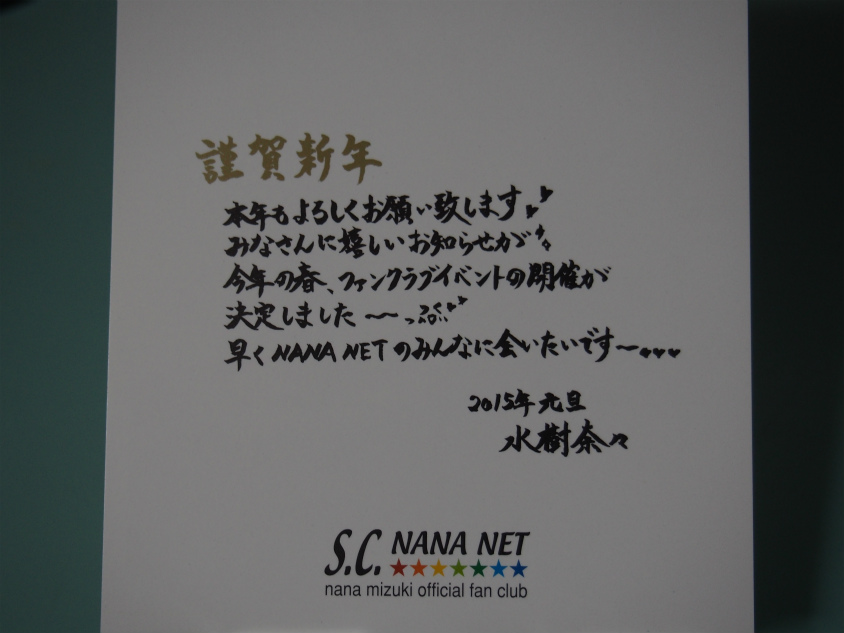 謹賀新年
本年もよろしくお願い致します
みなさんに嬉しいお知らせが
今年の春、ファンクラブイベントの開催が
決定しました〜〜
早くNANA NETのみんなに会いたいです〜
2015年 元旦
水樹奈々
S.C. NANA NET
nana mizuki official fan club